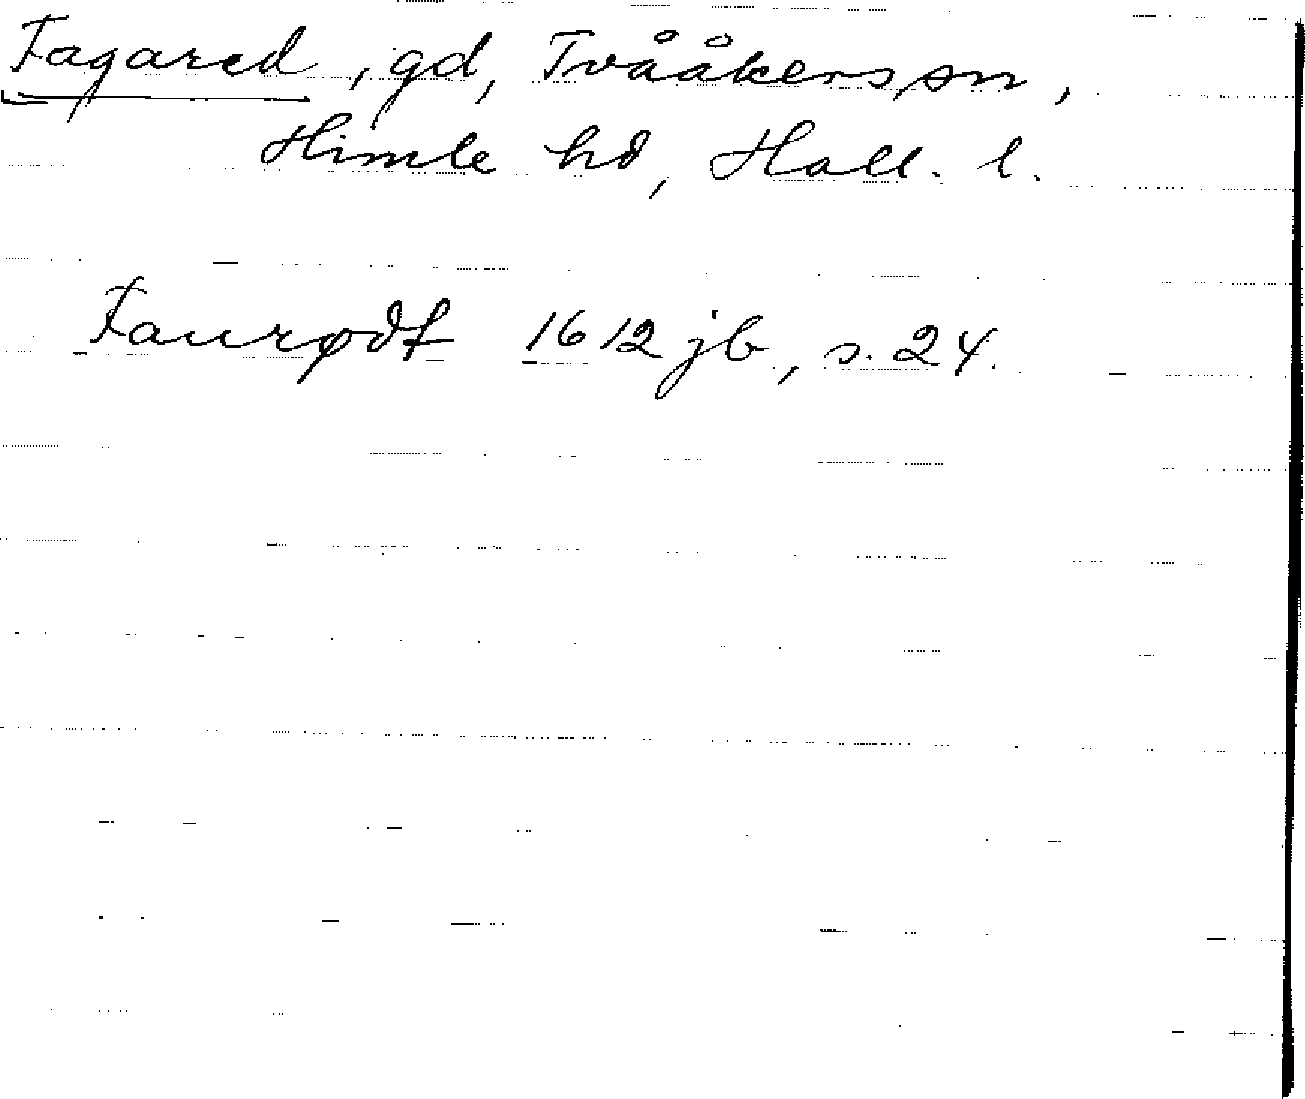 Fagared, gd, Tvååkers sn,
Himle hd, Hall. l.
Faurødt 1612 jb, s. 24.